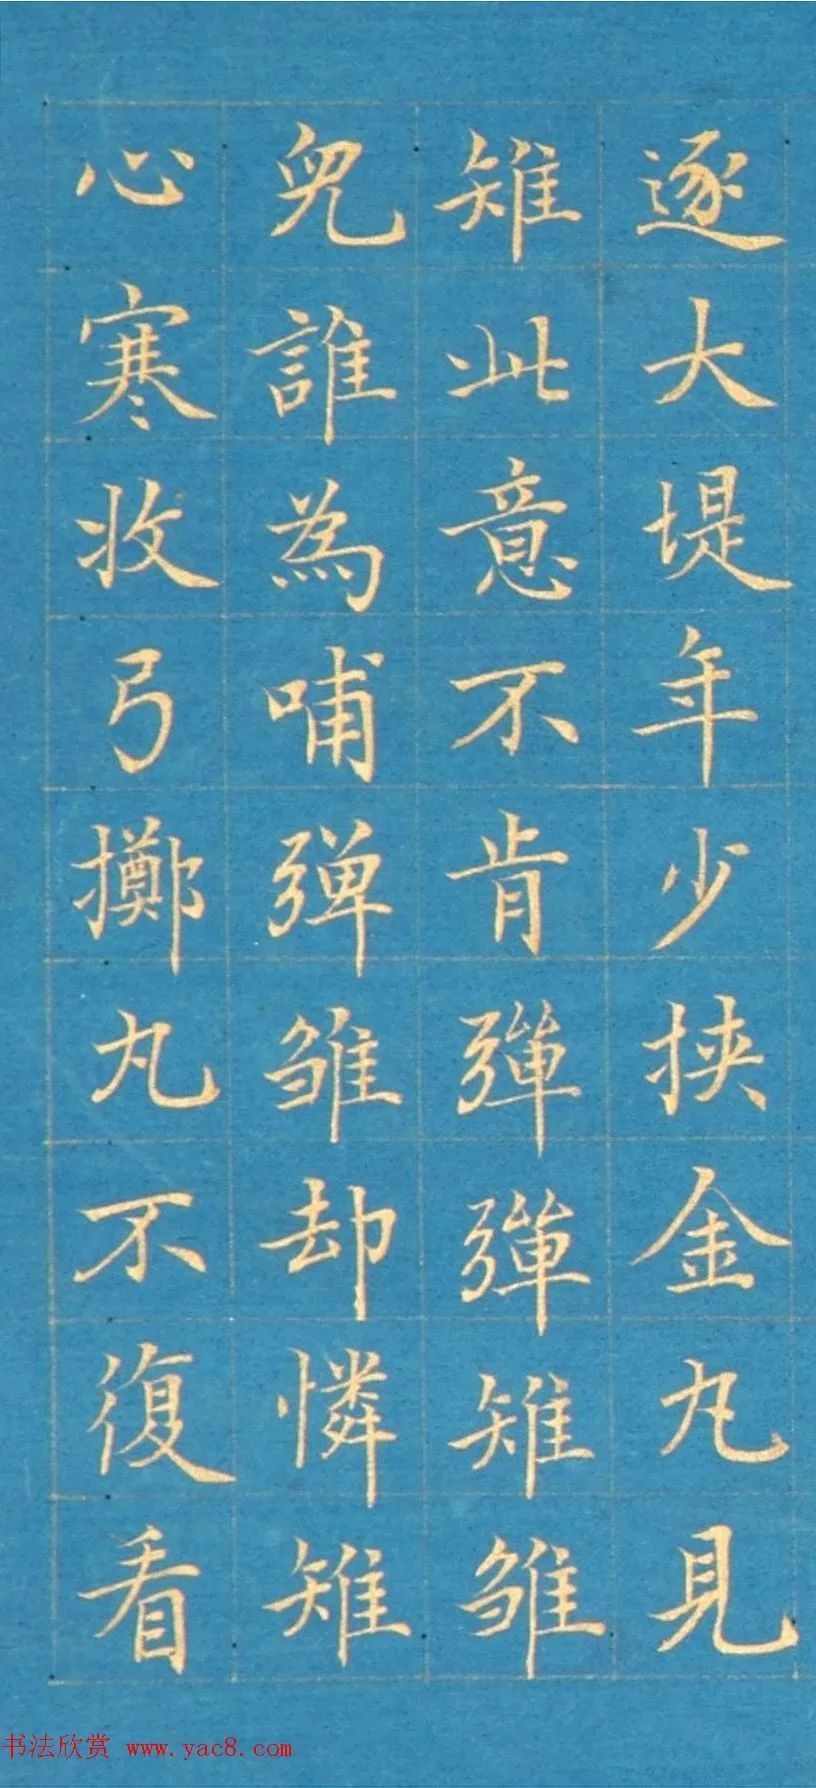 逐大堤年少挟金丸見
雉此意不肯彈彈雉雏
兒誰為哺弹雏却憐雉
心寒收弓擲丸不復看
书法欣赏 www.yac8.com